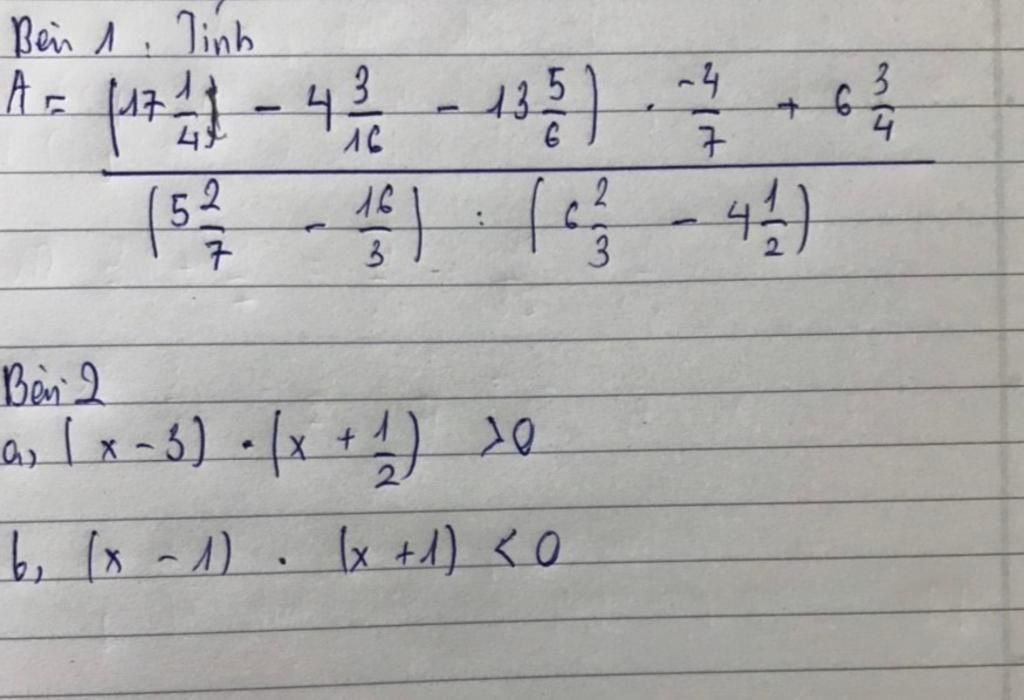 Bài 1. Tính
A = ((17 1/4) - 4 3/16 - 13 5/6) · -4/7 + 6 3/4
(5 2/7 - 16/3) : (6 2/3 - 4 1/2)
Bài 2
a, (x - 3) · (x + 1/2) > 0
b, (x - 1) . (x + 1) < 0